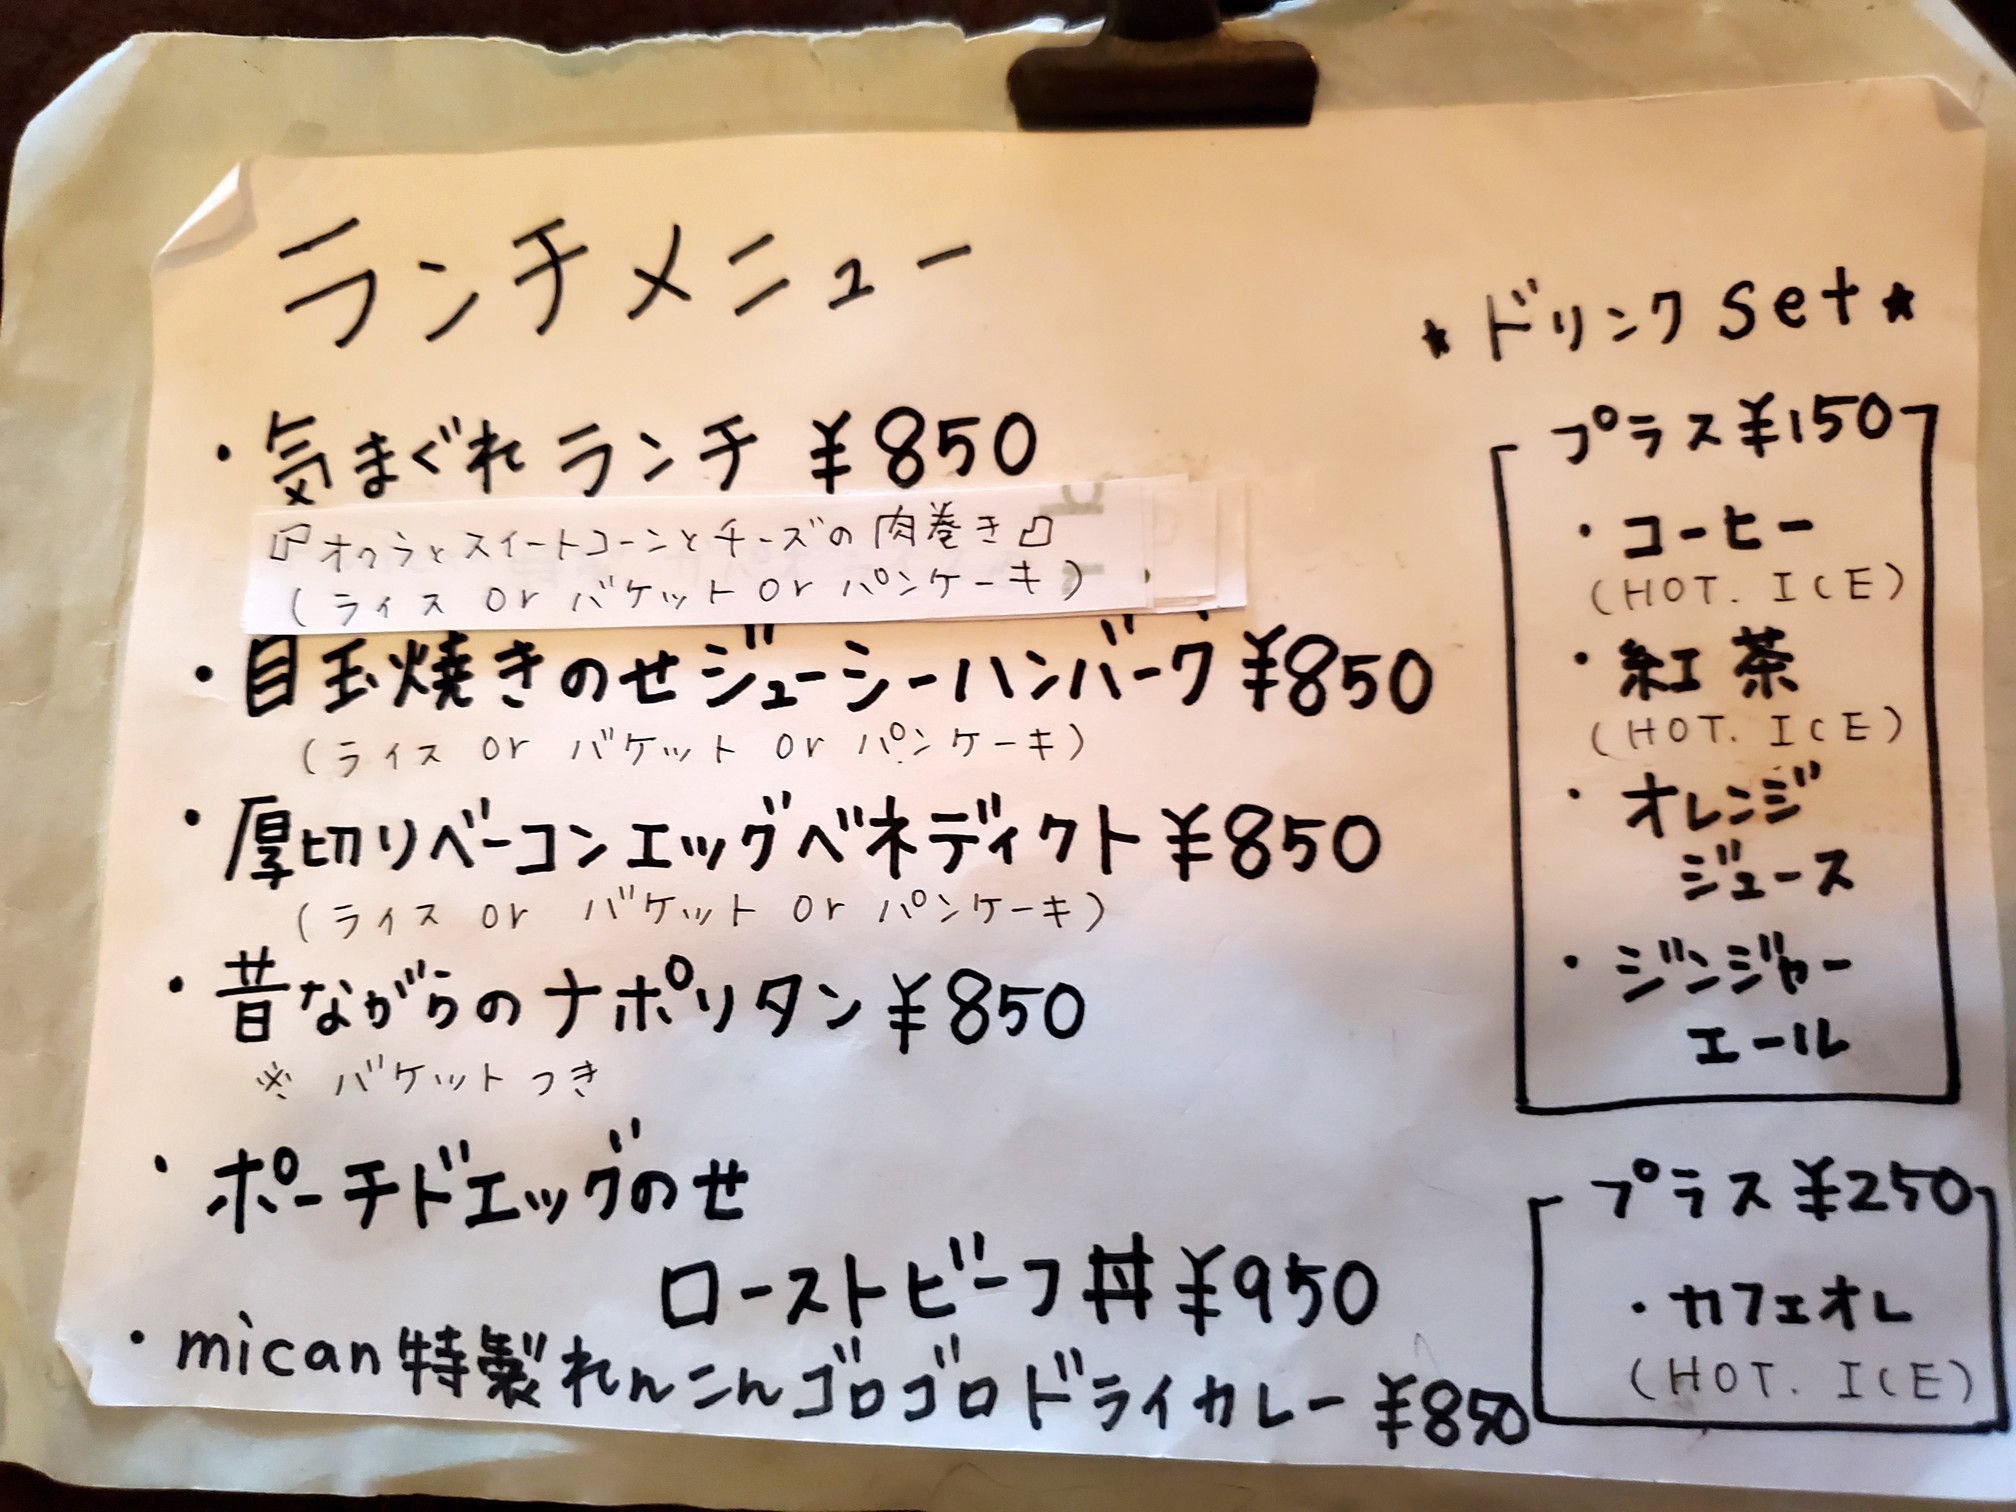 ランチメニュー
・気まぐれランチ ¥850
『オクラとスイートコーンとチーズの肉巻き』
(ライス or バケット or パンケーキ)
・目玉焼きのせジューシーハンバーグ ¥850
(ライス or バケット or パンケーキ)
・厚切りベーコンエッグベネディクト ¥850
(ライス or バケット or パンケーキ)
・昔ながらのナポリタン ¥850
※ バケットつき
・ポーチドエッグのせ
ローストビーフ丼 ¥950
・mican特製れんこんゴロゴロドライカレー ¥850
★ドリンクset★
プラス¥150
・コーヒー
(HOT. ICE)
・紅茶
(HOT. ICE)
・オレンジ
ジュース
・ジンジャー
エール
プラス¥250
・カフェオレ
(HOT. ICE)